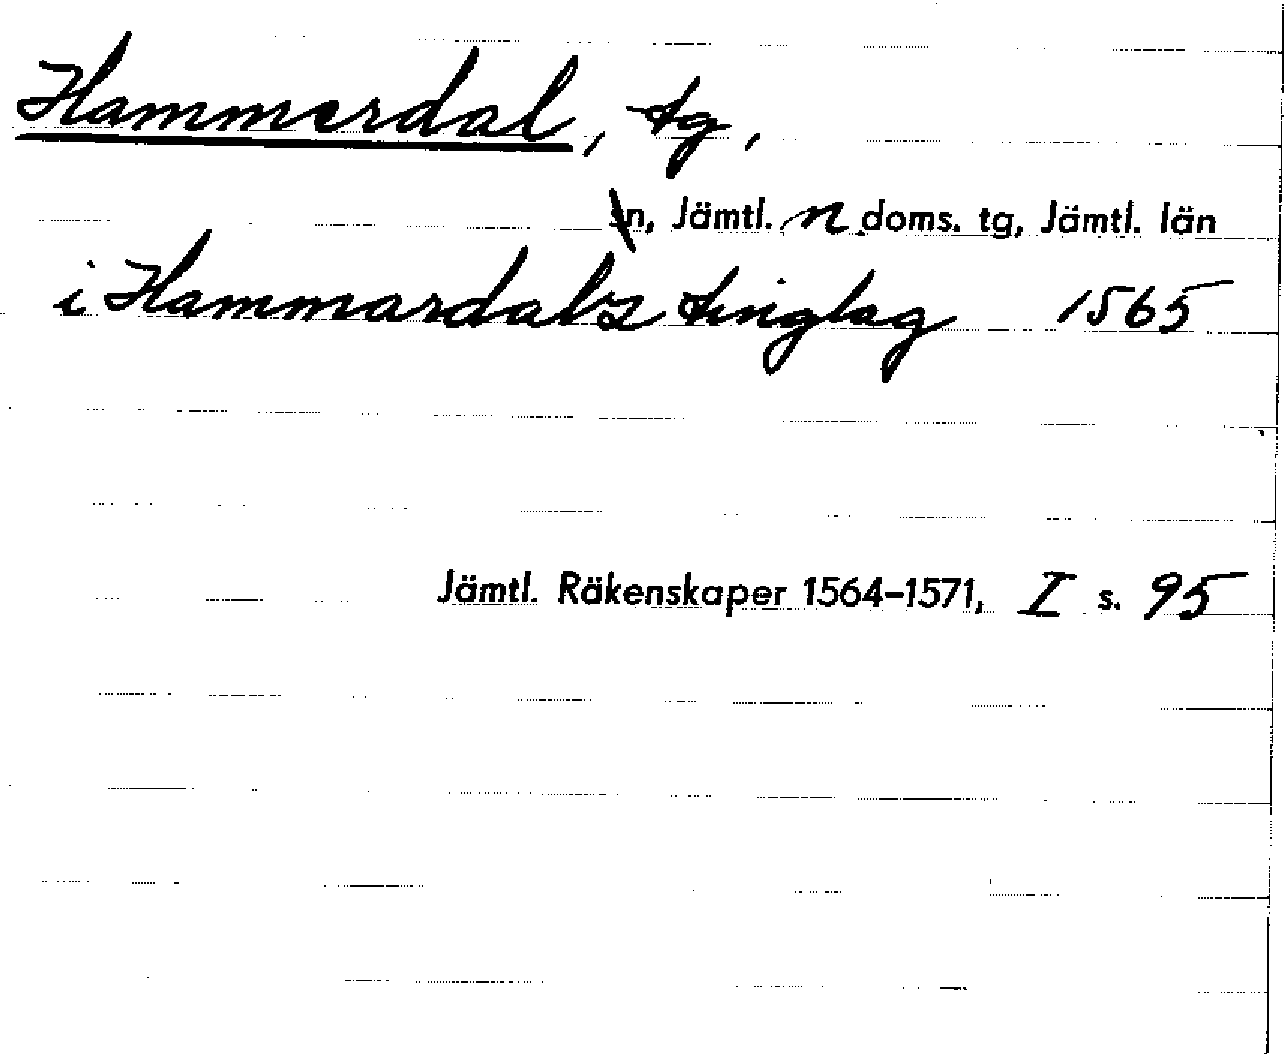 Hammerdal, tg,
sn, Jämtl. n doms. tg, Jämtl. län
i Hammardalz tinglag 1565
Jämtl. Räkenskaper 1564–1571, I s. 95